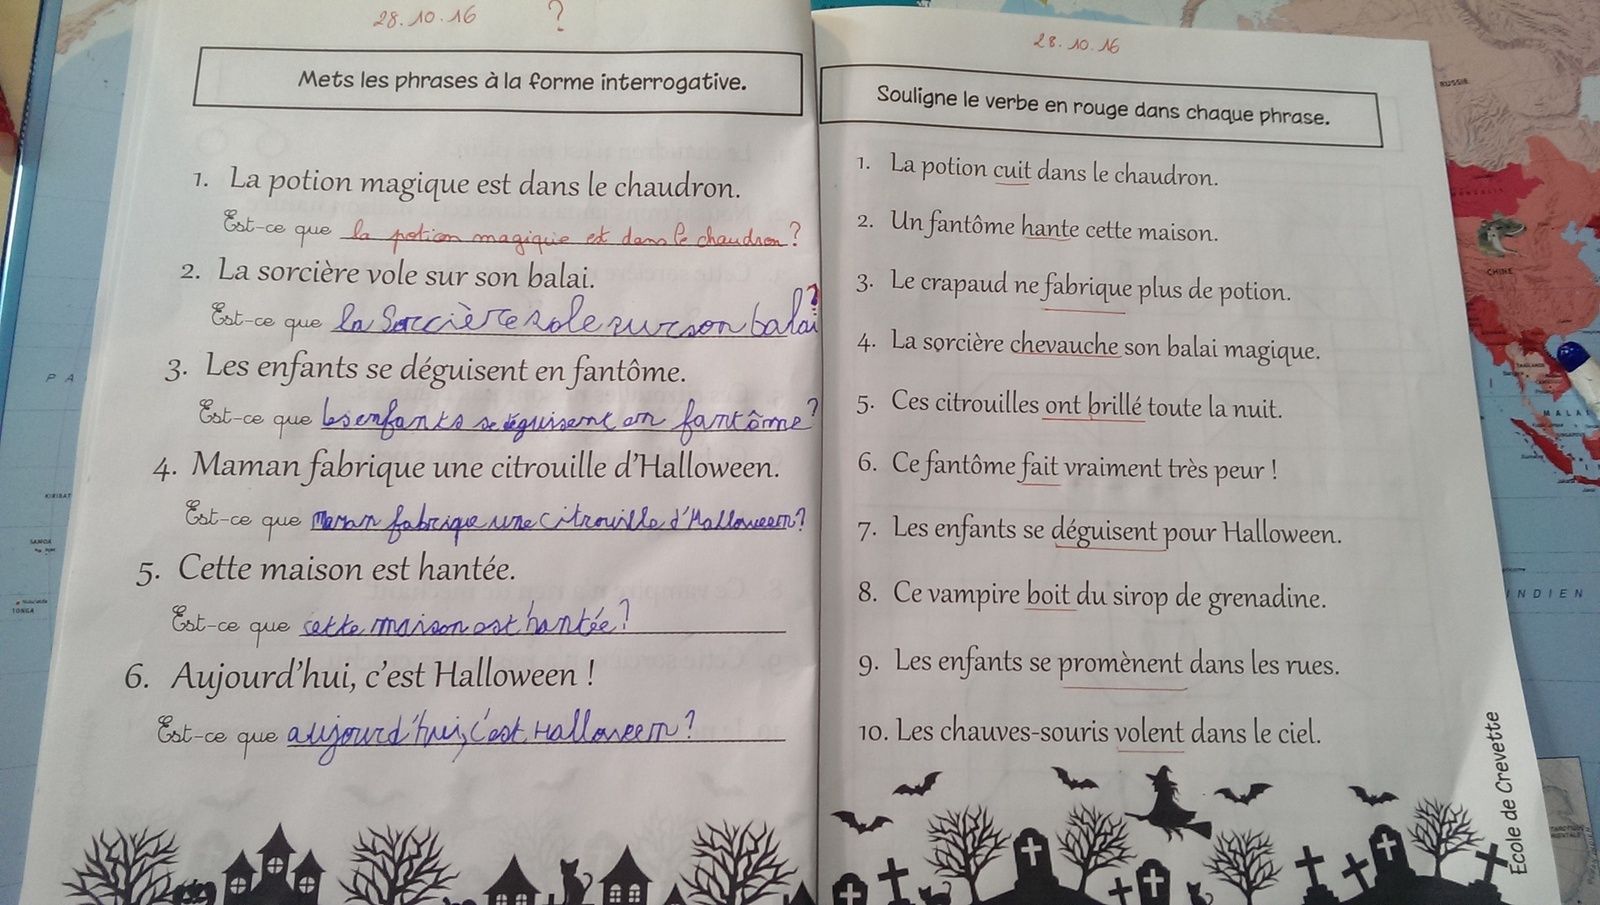 28.10.16 ?
Mets les phrases à la forme interrogative.
1. La potion magique est dans le chaudron.
Est-ce que la potion magique est dans le chaudron?
2. La sorcière vole sur son balai.
Est-ce que la Sorcière vole sur son balai?
3. Les enfants se déguisent en fantôme.
Est-ce que les enfants se déguisent en fantôme?
4. Maman fabrique une citrouille d'Halloween.
Est-ce que maman fabrique une citrouille d'Halloween?
5. Cette maison est hantée.
Est-ce que cette maison est hantée?
6. Aujourd'hui, c'est Halloween !
Est-ce que aujourd'hui, c'est Halloween?
28.10.16
Souligne le verbe en rouge dans chaque phrase.
1. La potion cuit dans le chaudron.
2. Un fantôme hante cette maison.
3. Le crapaud ne fabrique plus de potion.
4. La sorcière chevauche son balai magique.
5. Ces citrouilles ont brillé toute la nuit.
6. Ce fantôme fait vraiment très peur !
7. Les enfants se déguisent pour Halloween.
8. Ce vampire boit du sirop de grenadine.
9. Les enfants se promènent dans les rues.
10. Les chauves-souris volent dans le ciel.
Ecole de Crevette
RUSSIE
CHINE
P A
KIRIBATI
SAMOA
TONGA
MALAI
INDIEN